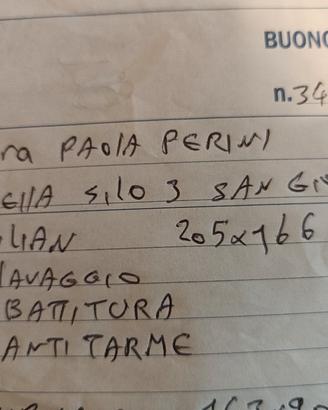 BUONO
n.34
ra PAOLA PERINI
ELLA SILO 3 SAN GIV
LIAN 205x166
LAVAGGIO
BATTITURA
ANTITARME